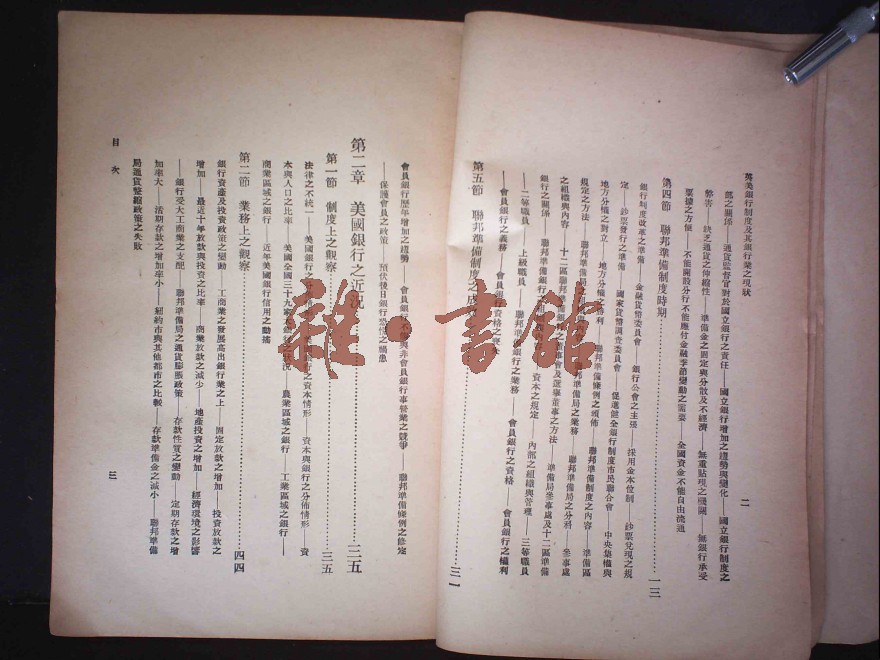 英美銀行制度及其銀行業之現狀
二
部之關係——通貨監督官對於國立銀行之責任——國立銀行增加之趨勢與變化——國立銀行制度之
弊害——缺乏通貨之伸縮性——準備金之固定與分散及不經濟——無重貼現之機關——無銀行承受
票據之方便——不能開設分行不能應付金融季節變動之需要——全國資金不能自由流通
第四節 聯邦準備制度時期……一三
銀行制度改革之準備——金融貨幣委員會——銀行公會之主張——採用金本位制——鈔票兌現之規
定——鈔票發行之準備——國家貨幣調查委員會——促進健全銀行制度市民聯合會——中央集權與
地方分權之對立——地方分權之勝利——聯邦準備條例之頒佈——聯邦準備制度之內容——準備區
規定之方法——聯邦準備局
之組織與內容——十二區聯邦準備
銀行之關係——聯邦準備銀行
——二等職員——上級職員——聯邦準備銀行之業務
——會員銀行之義務——會員銀行資格之喪失——會員銀行之資格——會員銀行之權利
第五節 聯邦準備制度之……三一
會員銀行歷年增加之趨勢——會員銀行不能與非會員銀行事營業之競爭——聯邦準備條例之修定
——保護會員之政策——預伏後日銀行恐慌之禍患
第二章 美國銀行之近況……三五
第一節 制度上之觀察……三五
法律之不統一——美國銀行之分——銀行之資本情形——資本與銀行之分佈情形——資
本與人口之比率——美國全國三十九家——銀行狀況——農業區域之銀行——工業區域之銀行——
商業區域之銀行——近年美國銀行信用之動搖
第二節 業務上之觀察……四四
銀行資產及投資政策之變動——工商業之發展高出銀行業之上——固定放款之增加——投資放款之
增加——最近十年放款與投資之比率——商業放款之減少——地產投資之增加——經濟環境之影響
——銀行受大工商業之支配——聯邦準備局之通貨膨脹政策——存款性質之變動——定期存款之增
加率大——活期存款之增加率小——紐約市與其他都市之比較——存款準備金之減小——聯邦準備
局通貨緊縮政策之失敗
目次
三
雜·書館